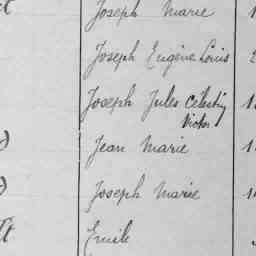 Joseph Marie
Joseph Eugène Louis
Joseph Jules Célestin
Victor
Jean Marie
Joseph Marie
Emile